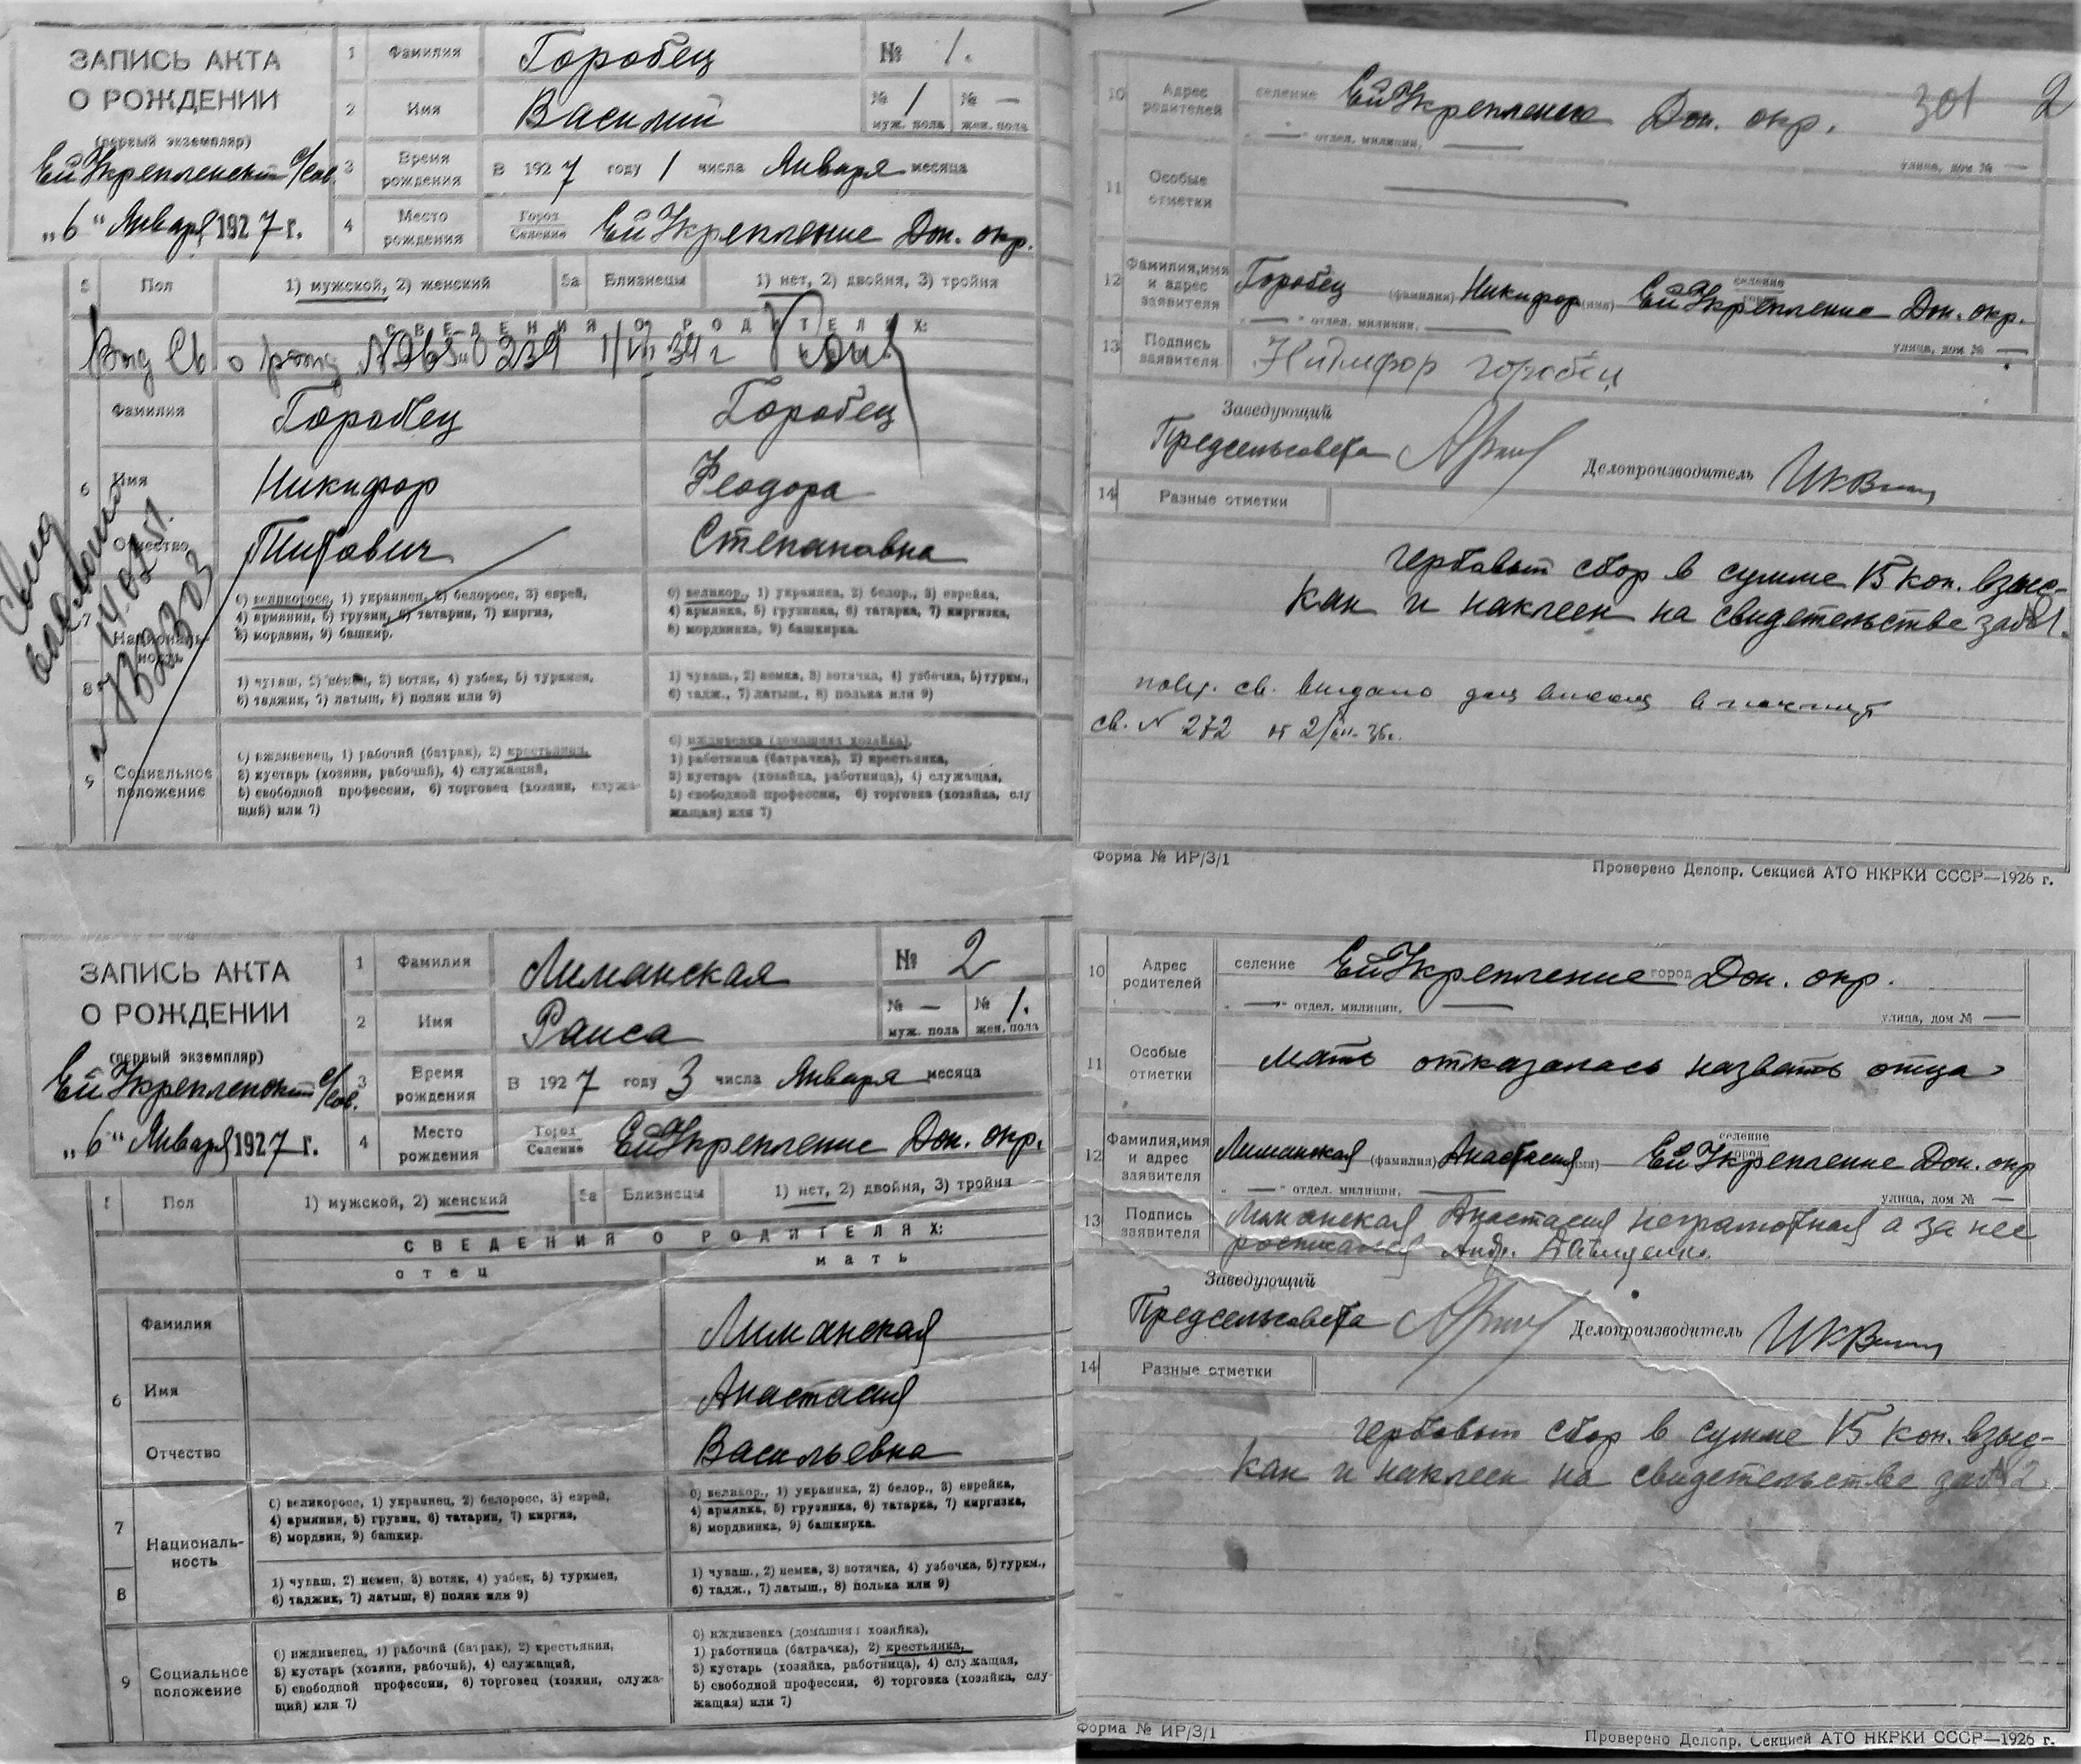 ЗАПИСЬ АКТА
О РОЖДЕНИИ
(первый экземпляр)
Ейукрепленский с/сов.
„6“ Января 1927 г.
1 Фамилия Горобец № 1.
2 Имя Василий № 1 муж. пола № — жен. пола
3 Время рождения В 1927 году 1 числа Января месяца
4 Место рождения Город Селение Ейукрепление Дон. окр.
5 Пол 1) мужской, 2) женский 5а Близнецы 1) нет, 2) двойня, 3) тройня
СВЕДЕНИЯ О РОДИТЕЛЯХ:
Выд Св. о рожд
Фамилия Горобец Горобец
6 Имя Никифор Феодора
Отчество Титович Степановна
Свид
7 Националь-
ность
0) великоросс, 1) украинец, 2) белоросс, 3) еврей,
4) армянин, 5) грузин, 6) татарин, 7) киргиз,
8) мордвин, 9) башкир.
0) великор., 1) украинка, 2) белор., 3) еврейка,
4) армянка, 5) грузинка, 6) татарка, 7) киргизка,
8) мордвинка, 9) башкирка.
8
1) чуваш, 2) немец, 3) вотяк, 4) узбек, 5) туркмен,
6) таджик, 7) латыш, 8) поляк или 9)
1) чуваш., 2) немка, 3) вотячка, 4) узбечка, 5) туркм.,
6) тадж., 7) латыш., 8) полька или 9)
9 Социальное
положение
0) иждивенец, 1) рабочий (батрак), 2) крестьянин,
3) кустарь (хозяин, рабочий), 4) служащий,
5) свободной профессии, 6) торговец (хозяин, служа-
щий) или 7)
0) иждивенка (домашняя хозяйка),
1) работница (батрачка), 2) крестьянка,
3) кустарь (хозяйка, работница), 4) служащая,
5) свободной профессии, 6) торговка (хозяйка, слу
жащая) или 7)
301 2
10 Адрес родителей селение Ейукрепление Дон. окр.
„ — “ отдел. милиции, — улица, дом № —
11 Особые отметки —
12 Фамилия, имя и адрес заявителя Горобец (фамилия) Никифор (имя) селение город Ейукрепление Дон. окр.
„ — “ отдел. милиции, — улица, дом № —
13 Подпись заявителя Никифор Горобец
Заведующий
Предсельсовета Делопроизводитель
14 Разные отметки
гербовый сбор в сумме 15 коп. взыс-
кан и наклеен на свидетельстве за № 1.
повт. св. выдано
св. № 272 от
Форма № ИР/3/1
Проверено Делопр. Секцией АТО НКРКИ СССР—1926 г.
ЗАПИСЬ АКТА
О РОЖДЕНИИ
(первый экземпляр)
Ейукрепленский с/сов.
„6“ Января 1927 г.
1 Фамилия Лиманская № 2
2 Имя Раиса № — муж. пола № 1. жен. пола
3 Время рождения В 1927 году 3 числа Января месяца
4 Место рождения Город Селение Ейукрепление Дон. окр.
5 Пол 1) мужской, 2) женский 5а Близнецы 1) нет, 2) двойня, 3) тройня
СВЕДЕНИЯ О РОДИТЕЛЯХ:
отец мать
Фамилия Лиманская
6 Имя Анастасия
Отчество Васильевна
7 Националь-
ность
0) великоросс, 1) украинец, 2) белоросс, 3) еврей,
4) армянин, 5) грузин, 6) татарин, 7) киргиз,
8) мордвин, 9) башкир.
0) великор., 1) украинка, 2) белор., 3) еврейка,
4) армянка, 5) грузинка, 6) татарка, 7) киргизка,
8) мордвинка, 9) башкирка.
8
1) чуваш, 2) немец, 3) вотяк, 4) узбек, 5) туркмен,
6) таджик, 7) латыш, 8) поляк или 9)
1) чуваш., 2) немка, 3) вотячка, 4) узбечка, 5) туркм.,
6) тадж., 7) латыш., 8) полька или 9)
9 Социальное
положение
0) иждивенец, 1) рабочий (батрак), 2) крестьянин,
3) кустарь (хозяин, рабочий), 4) служащий,
5) свободной профессии, 6) торговец (хозяин, служа-
щий) или 7)
0) иждивенка (домашняя хозяйка),
1) работница (батрачка), 2) крестьянка,
3) кустарь (хозяйка, работница), 4) служащая,
5) свободной профессии, 6) торговка (хозяйка, слу-
жащая) или 7)
10 Адрес родителей селение Ейукрепление город Дон. окр.
„ — “ отдел. милиции, — улица, дом № —
11 Особые отметки мать отказалась назвать отца
12 Фамилия, имя и адрес заявителя Лиманская (фамилия) Анастасия (имя) селение город Ейукрепление Дон. окр
„ — “ отдел. милиции, — улица, дом № —
13 Подпись заявителя Лиманская Анастасия неграмотная а за нее
росписался Андр. Давиденко.
Заведующий
Предсельсовета Делопроизводитель
14 Разные отметки
гербовый сбор в сумме 15 коп. взыс-
кан и наклеен на свидетельстве за № 2.
Форма № ИР/3/1
Проверено Делопр. Секцией АТО НКРКИ СССР—1926 г.